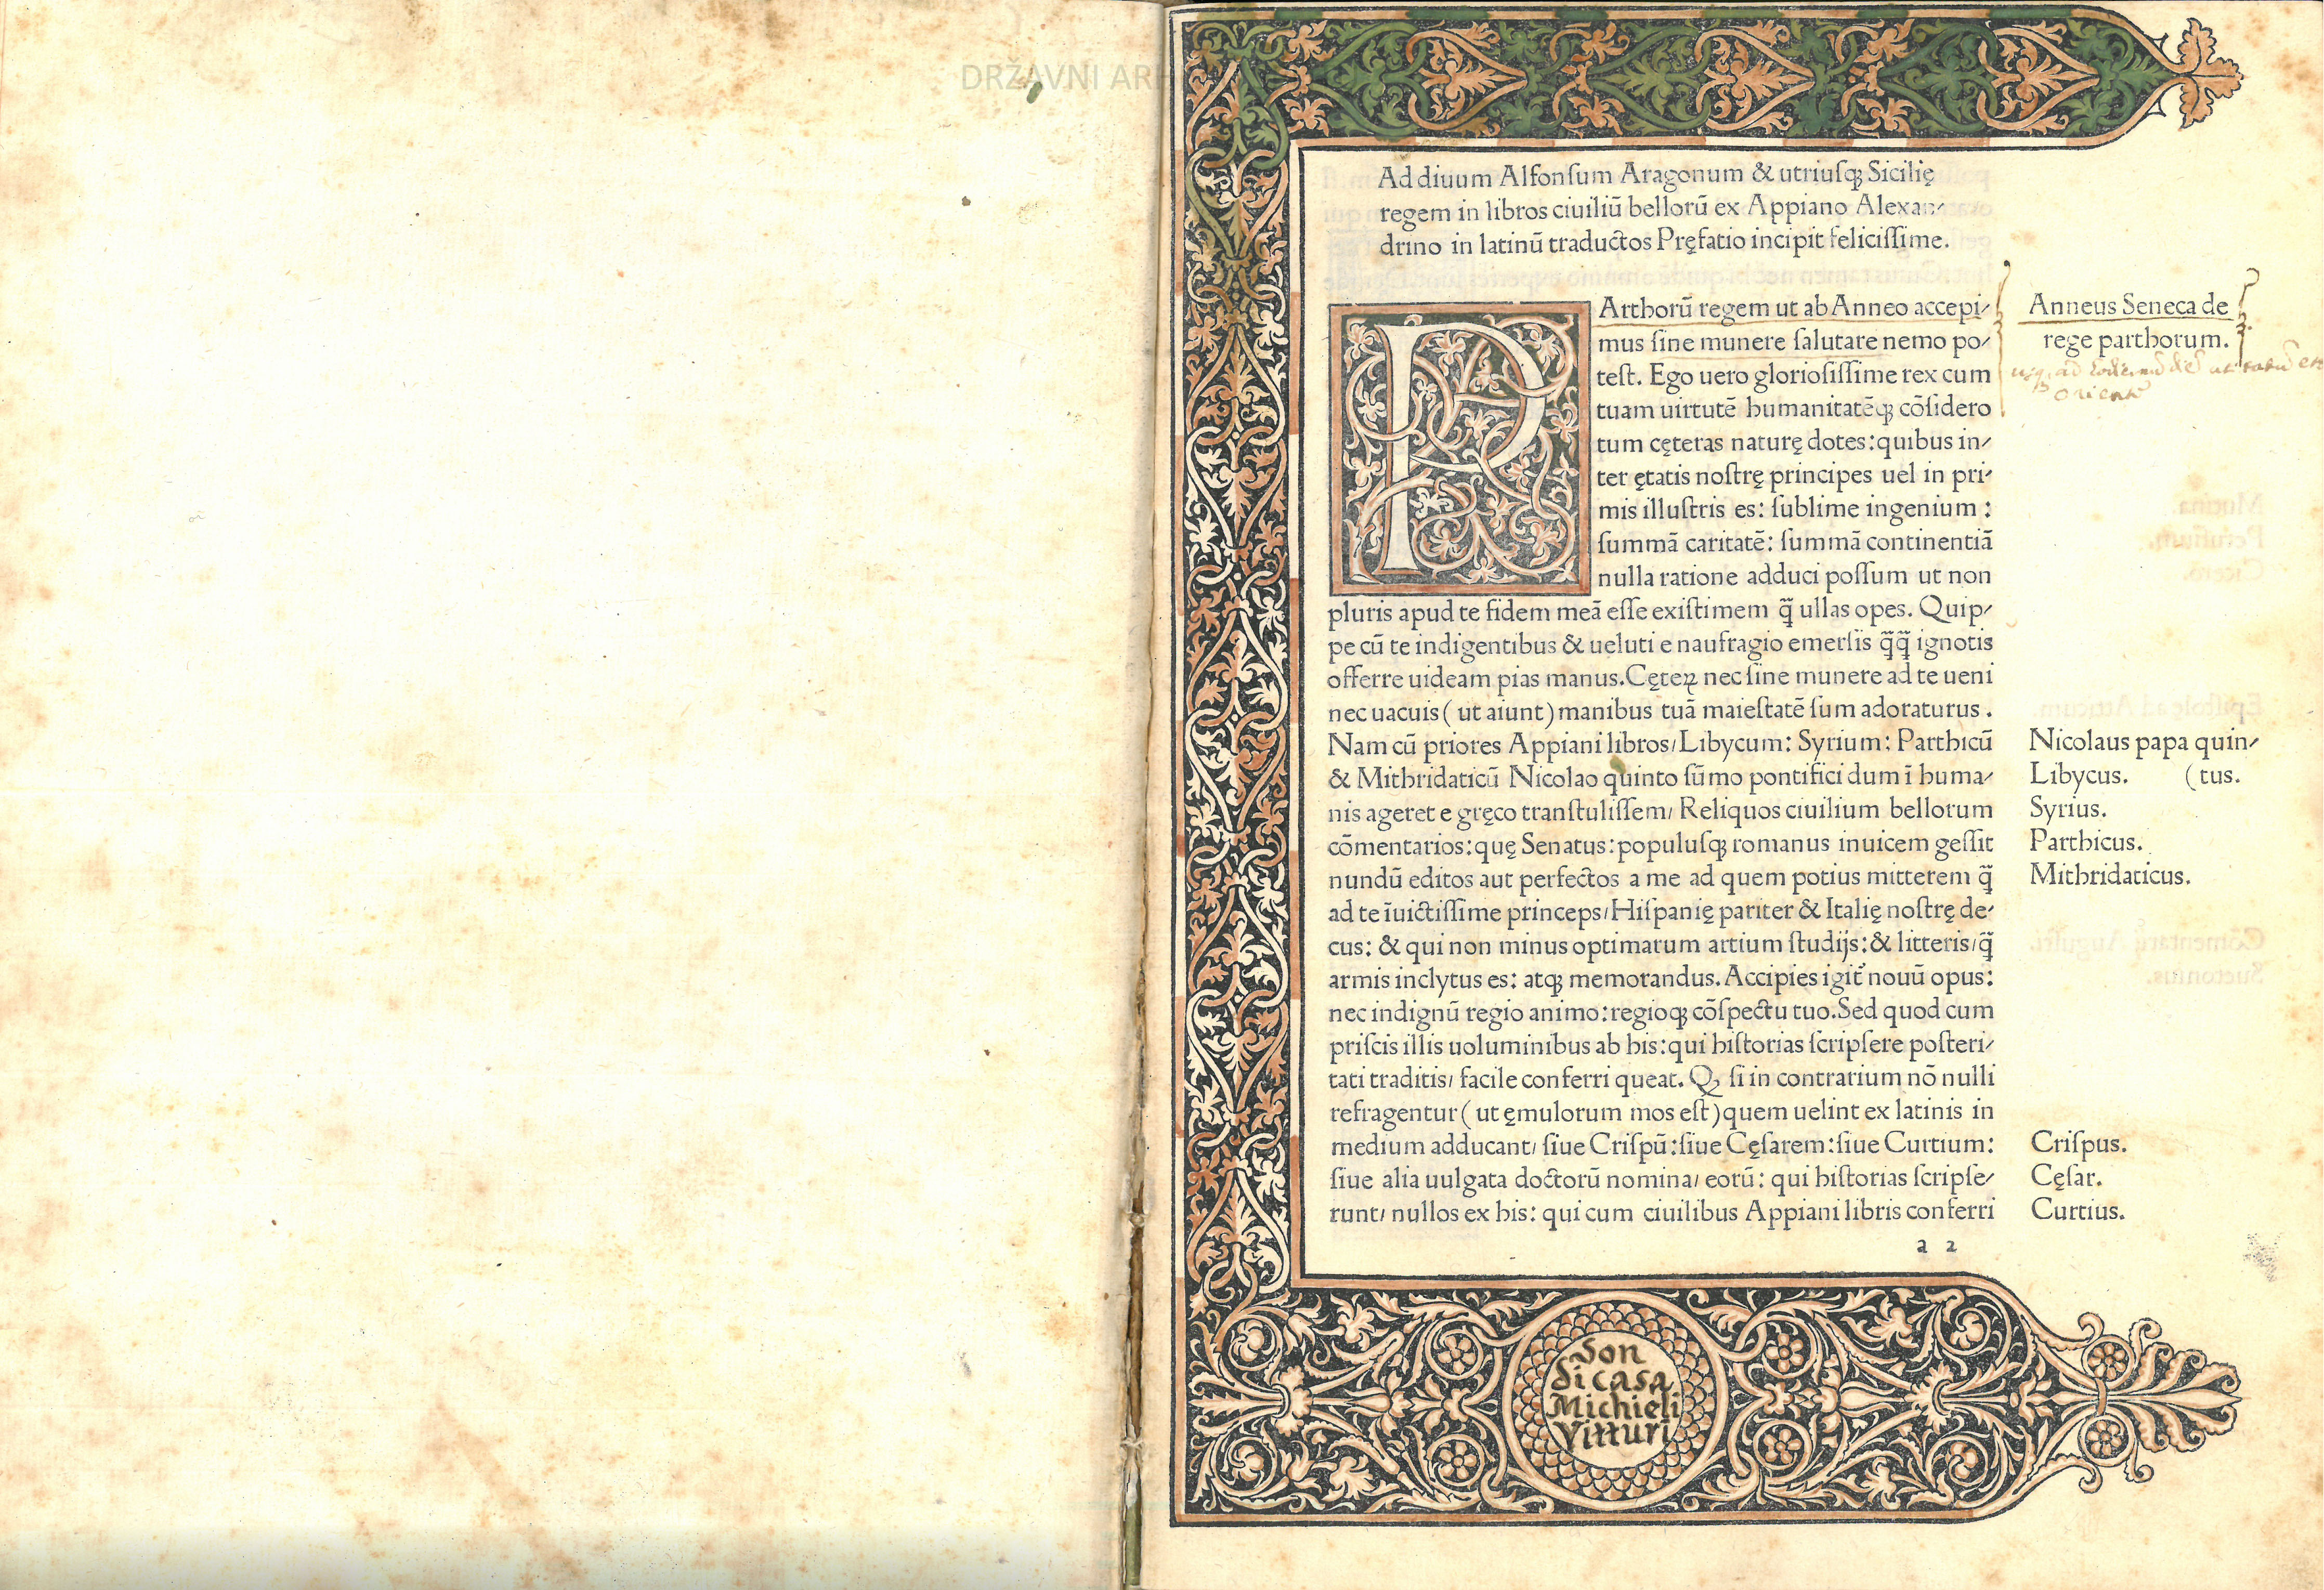 DRŽAVNI
Ad diuum Alfonſum Aragonum & utriuſq; Sicilię
regem in libros ciuiliū bellorū ex Appiano Alexan-
drino in latinū traductos Pręfatio incipit feliciſſime.
P
Arthorū regem ut ab Anneo accepi-
mus ſine munere ſalutare nemo po-
teſt. Ego uero glorioſiſſime rex cum
tuam uirtutē humanitatēq; cōſidero
tum cęteras naturę dotes: quibus in-
ter ętatis noſtrę principes uel in pri-
mis illuſtris es: ſublime ingenium:
ſummā caritatē: ſummā continentiā
nulla ratione adduci poſſum ut non
pluris apud te fidem meā eſſe exiſtimem q̄ ullas opes. Quip-
pe cū te indigentibus & ueluti e naufragio emerſis q̄q̄ ignotis
offerre uideam pias manus. Cęteꝝ nec ſine munere ad te ueni
nec uacuis (ut aiunt) manibus tuā maieſtatē ſum adoraturus.
Nam cū priores Appiani libros/ Libycum: Syrium: Parthicū
& Mithridaticū Nicolao quinto ſūmo pontifici dum ī huma-
nis ageret e gręco tranſtuliſſem/ Reliquos ciuilium bellorum
cōmentarios: quę Senatus: populuſq; romanus inuicem geſſit
nundū editos aut perfectos a me ad quem potius mitterem q̄
ad te īuictiſſime princeps/ Hiſpanię pariter & Italię noſtrę de-
cus: & qui non minus optimarum artium ſtudijs: & litteris/ q̄
armis inclytus es: atq; memorandus. Accipies igit̄ nouū opus:
nec indignū regio animo: regioq; cōſpectu tuo. Sed quod cum
priſcis illis uoluminibus ab his: qui hiſtorias ſcripſere poſteri-
tati traditis/ facile conferri queat. Q; ſi in contrarium nō nulli
refragentur (ut ęmulorum mos eſt) quem uelint ex latinis in
medium adducant/ ſiue Criſpū: ſiue Cęſarem: ſiue Curtium:
ſiue alia uulgata doctorū nomina/ eorū: qui hiſtorias ſcripſe-
runt/ nullos ex his: qui cum ciuilibus Appiani libris conferri
a 2
Anneus Seneca de
rege parthorum.
Nicolaus papa quin-
Libycus. (tus.
Syrius.
Parthicus.
Mithridaticus.
Criſpus.
Cęſar.
Curtius.
Son
di casa
Michieli
Vitturi